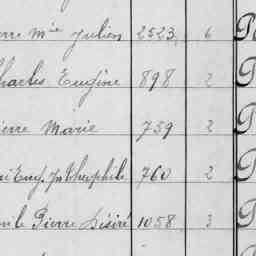 erre Mie Julien 2523 6
Charles Eugène 898 2
ierre Marie 759 2
Théophile 760 2
Pierre Désiré 1058 3